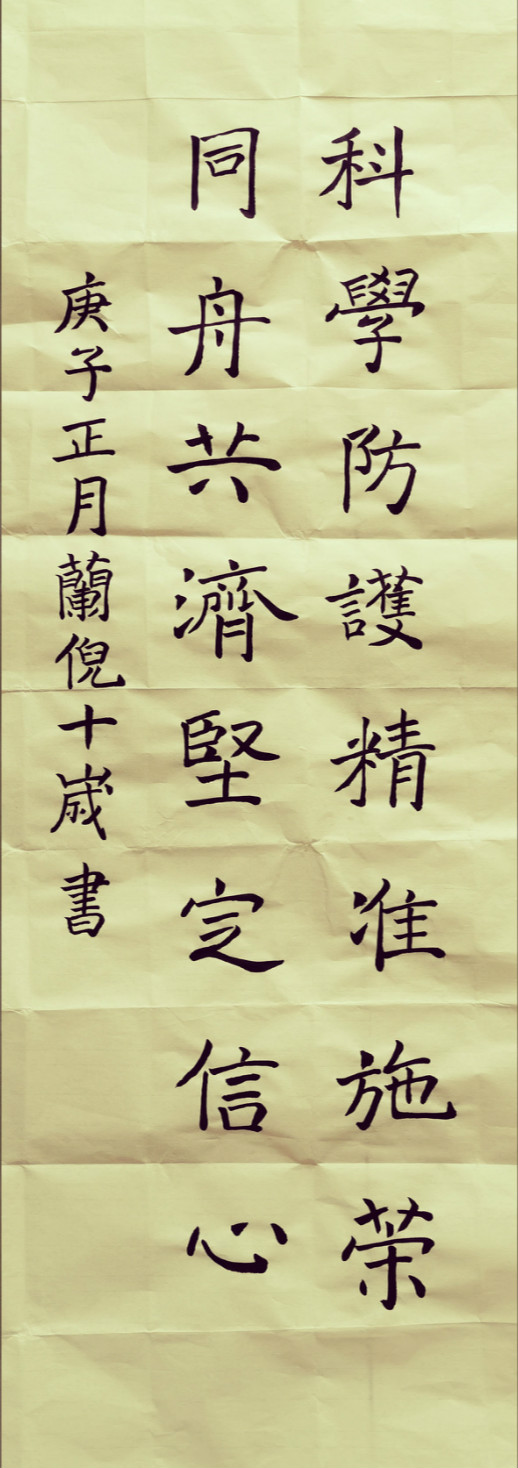 科學防護精准施荣
同舟共濟堅定信心
庚子正月蘭倪十歲書